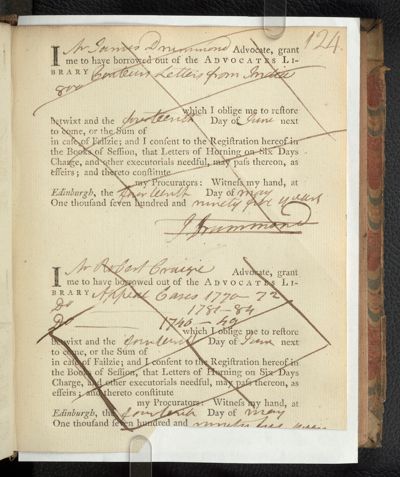 124.
I Mr James Drummond Advocate, grant
me to have borrowed out of the ADVOCATES LI-
BRARY Letters from India
8vo
which I oblige me to restore
betwixt and the fourteenth Day of June next
to come, or the Sum of
in case of Failzie; and I consent to the Registration hereof in
the Books of Session, that Letters of Horning on Six Days
Charge, and other executorials needful, may pass thereon, as
effeirs; and thereto constitute
my Procurators: Witness my hand, at
Edinburgh, the fourteenth Day of May
One thousand seven hundred and ninety five years
J Drummond
I Mr Robert Craigie Advocate, grant
me to have borrowed out of the ADVOCATES LI-
BRARY Appeal Cases 1770-72
Do 1781-84
Do 1740-49
which I oblige me to restore
betwixt and the fourteenth Day of June next
to come, or the Sum of
in case of Failzie; and I consent to the Registration hereof in
the Books of Session, that Letters of Horning on Six Days
Charge, and other executorials needful, may pass thereon, as
effeirs; and thereto constitute
my Procurators: Witness my hand, at
Edinburgh, the fourteenth Day of May
One thousand seven hundred and ninety five years